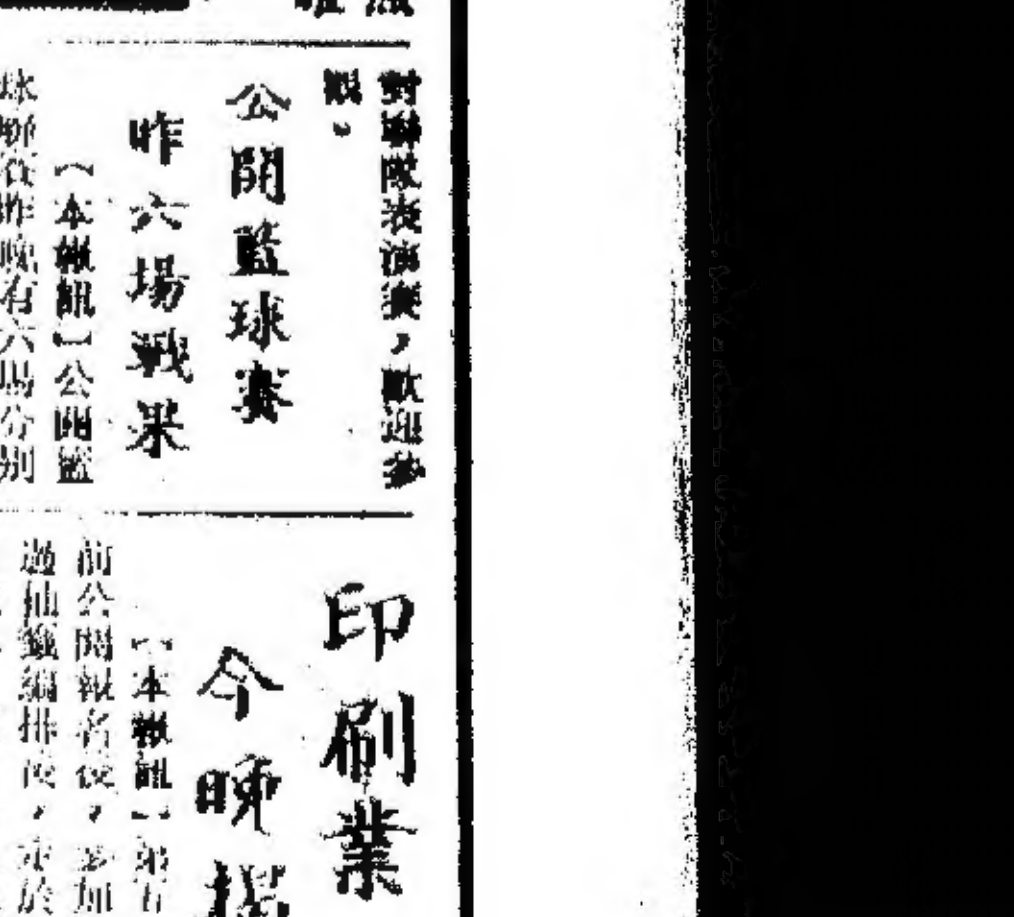 對聯隊表演賽，歡迎參
觀。
公開籃球賽
昨六場戰果
【本報訊】公開籃
球聯賽昨晚有六場分別
印刷業
今晚
【本報訊】第五
前公開報名後，參加
過抽籤編排後，于於